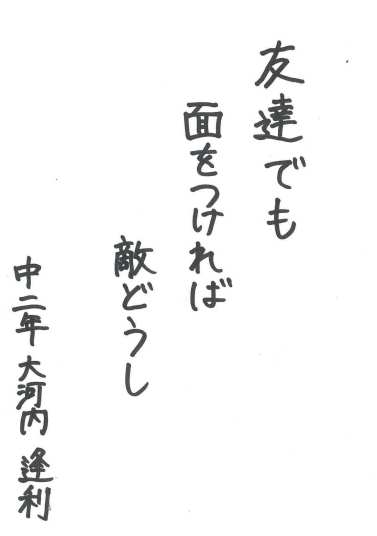 友達でも
面をつければ
敵どうし
中二年 大河内 逢利